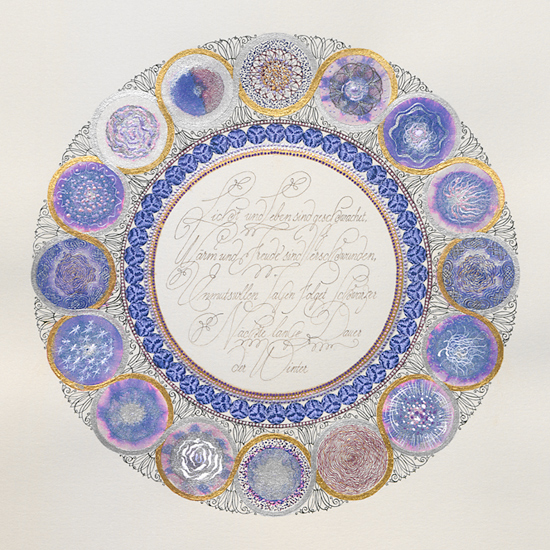 Licht und Leben sind geschwächt,
Wärm und Freude sind verschwunden,
Unmutsvollen Tagen folget schwarzer
Nächte lange Dauer
Winter